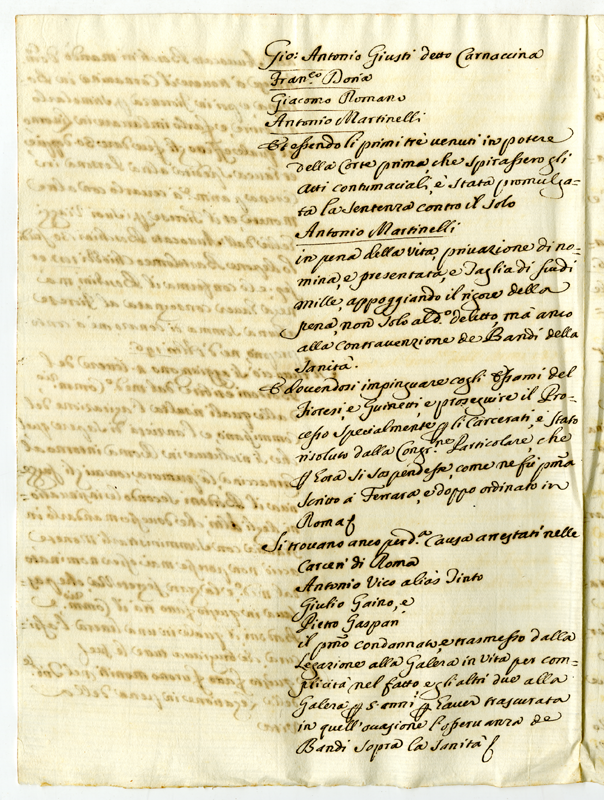 Gio: Antonio Giusti detto Carnaccina
Fran.co Doria
Giacomo Romano
Antonio Martinelli
Et essendoli primi trè venuti in potere
della Corte prima che spirassero gli
atti contumaciali, è stata promulga-
ta la sentenza contro il solo
Antonio Martinelli
in pena della vita, privazione di no-
mina, e presentata, e Taglia di scudi
mille, appoggiando il rigore della
pena, non solo al d.o delitto, ma anco
alla contravenzione de Bandi della
sanità.
E dovendosi impinguare cogli Esami del
Fioresi, e Guinetti, e proseguire il Pro-
cesso specialmente p gli Carcerati, è stato
risoluto dalla Congr.ne Particolare, che
p Lora si sospendesse, come ne fù pma
scritto à Ferrara, e doppo ordinato in
Roma
Si trovano anco per d.a Causa arrestati nelle
Carceri di Roma
Antonio Vico aliàs Tinto
Giulio Gaino, e
Pietro Gaspari
il pmo condannato, e trasmesso dalla
Legazione alla Galera in vita per com-
plicità nel fatto e gli altri due alla
Galera p 5 anni p Laver trascurata
in quell'occasione l'osservanza de
Bandi sopra la Sanità